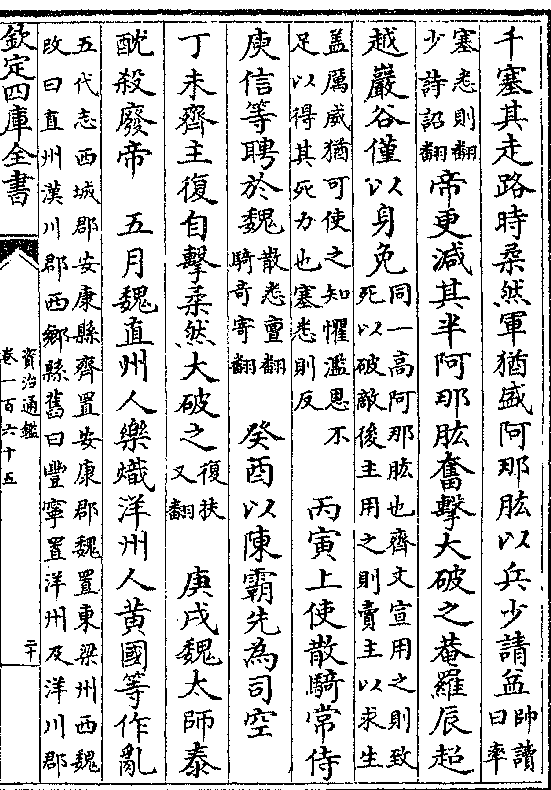 千塞其走路時柔然軍猶盛阿那肱以兵少請益帥讀曰率
塞悉則翻少詩沼翻帝更減其半阿那肱奮擊大破之菴羅辰超
越巖谷僅以身免同一高阿那肱也齊文宣用之則致死以破敵後主用之則賣主以求生
蓋厲威猶可使之知懼濫恩不足以得其死力也塞悉則反丙寅上使散騎常侍
庾信等聘於魏散悉亶翻騎奇寄翻癸酉以陳霸先為司空
丁未齊主復自擊柔然大破之復扶又翻庚戌魏太師泰
酖殺廢帝 五月魏直州人樂熾洋州人黃國等作亂
五代志西城郡安康縣齊置安康郡魏置東梁州西魏改曰直州漢川郡西鄉縣舊曰豐寧置洋州及洋川郡
欽定四庫全書
資治通鑑
卷一百六十五
二十